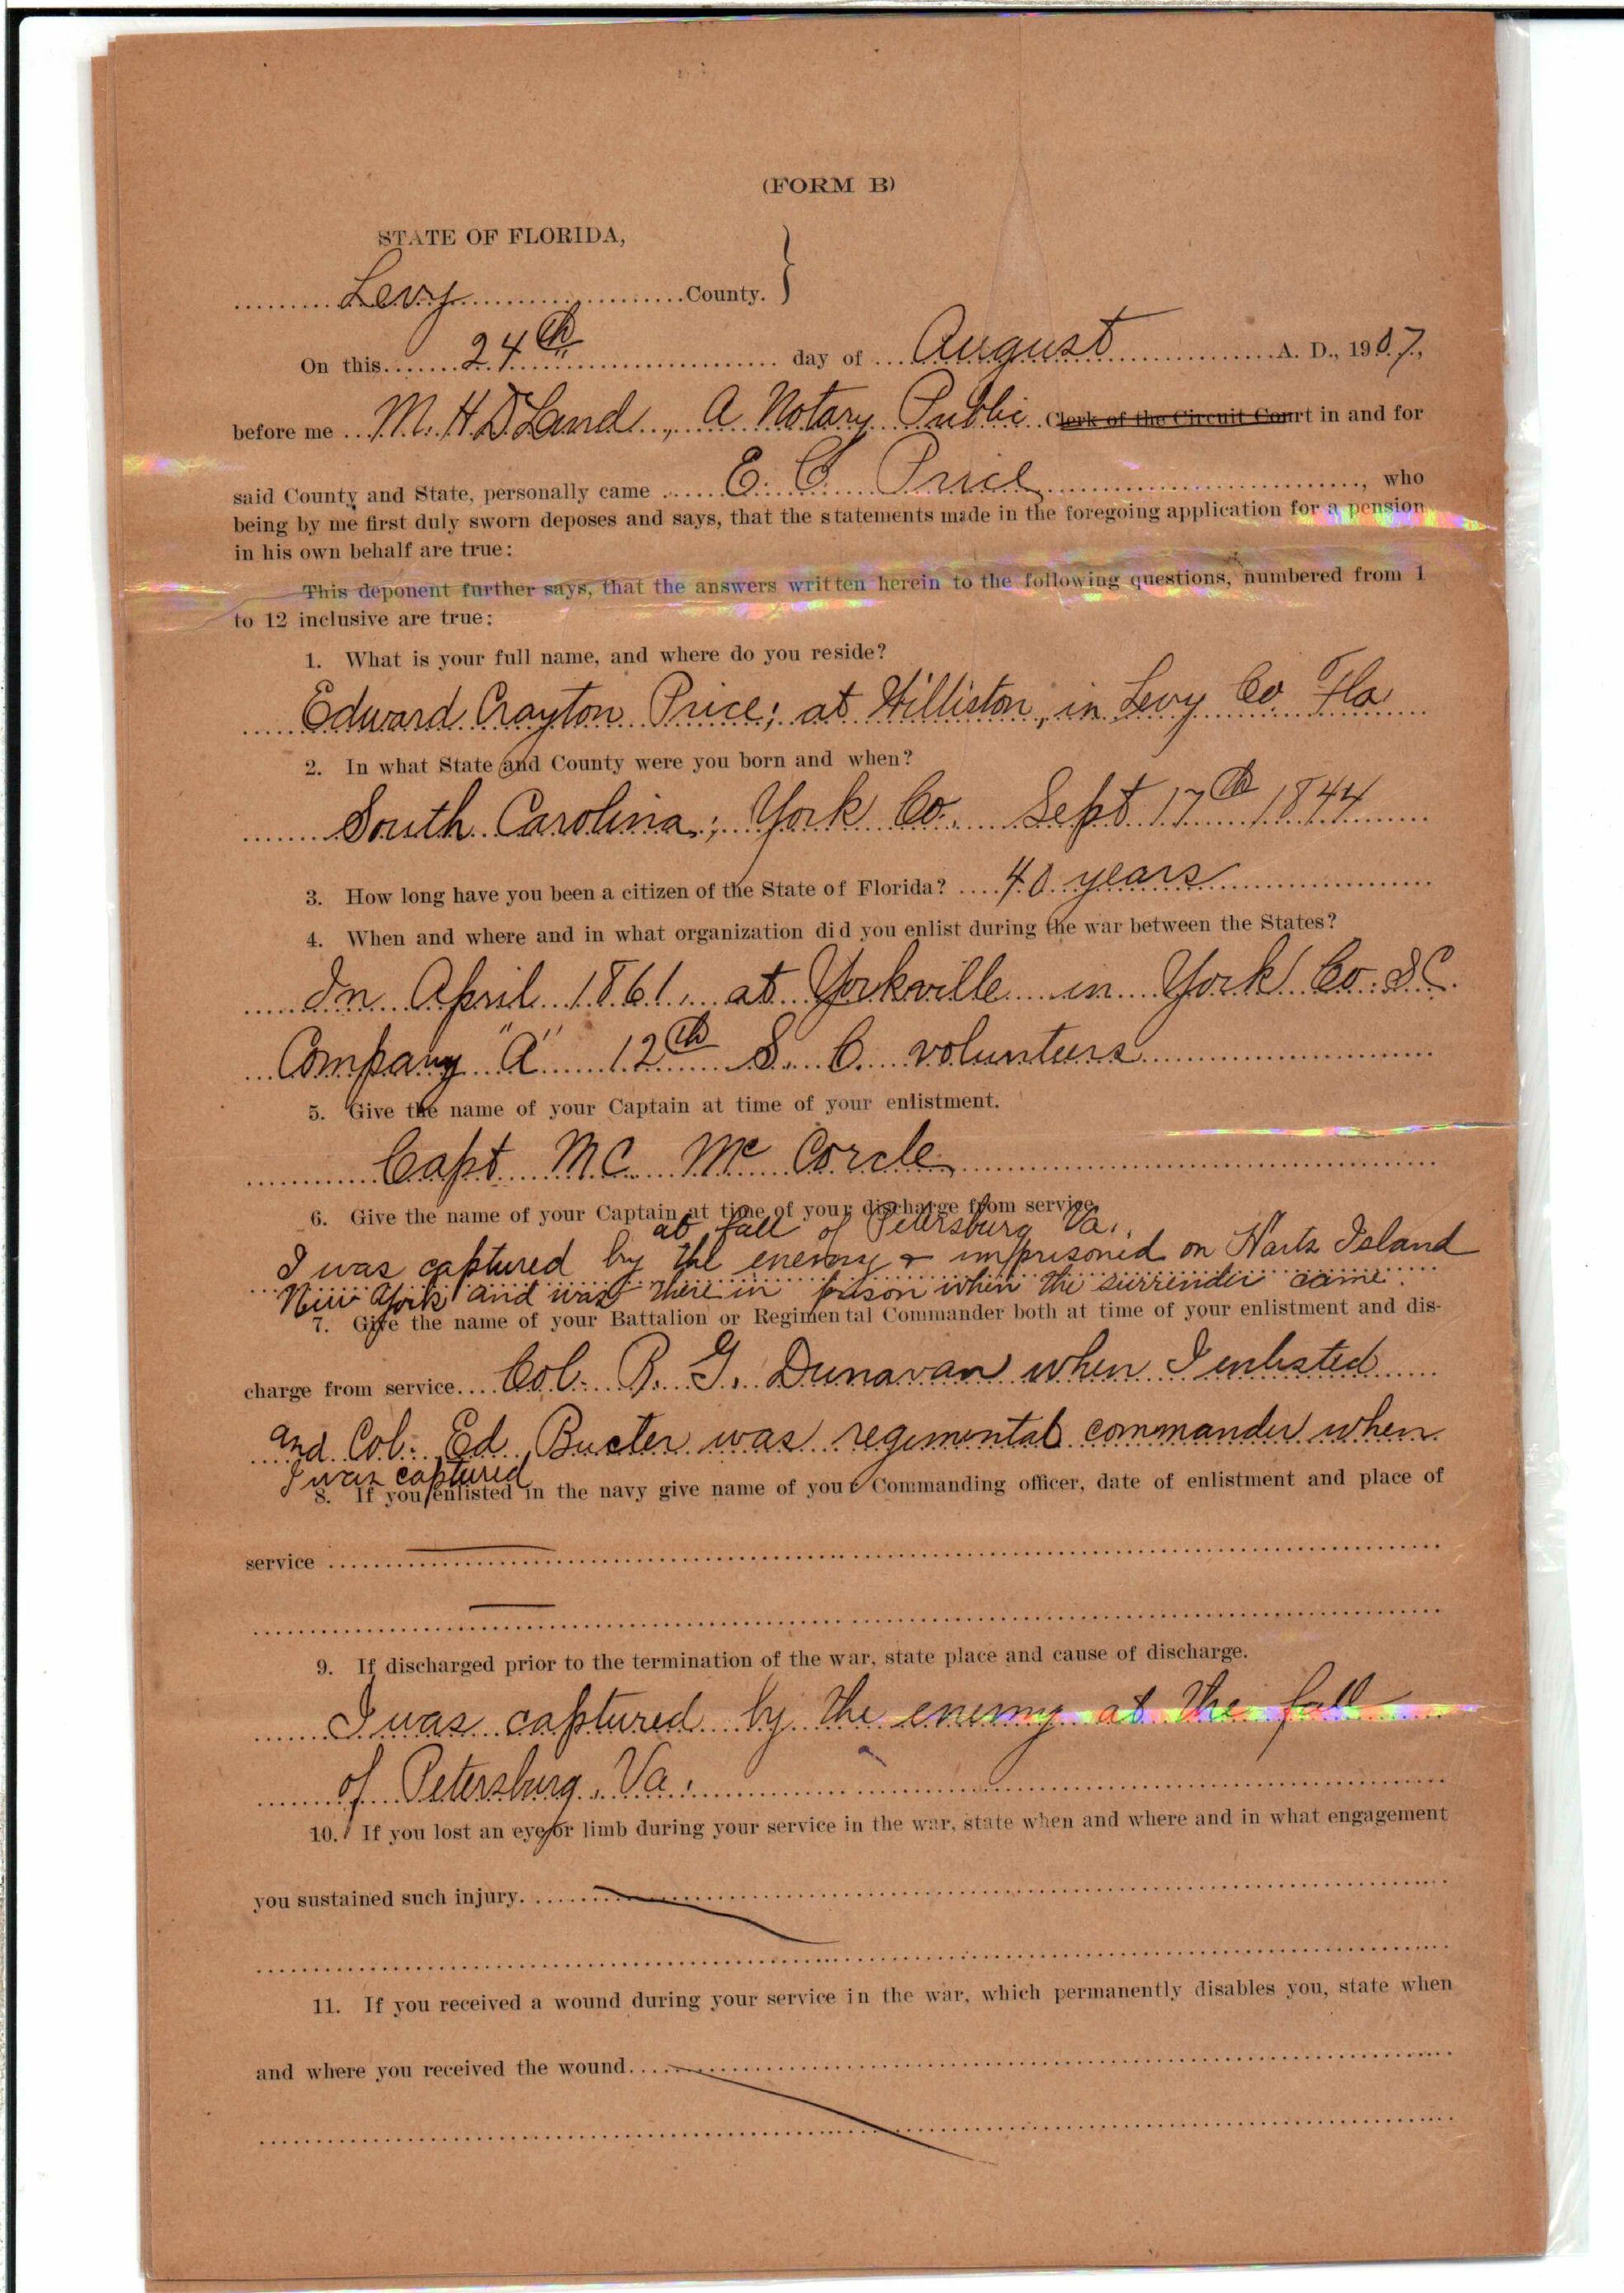 (FORM B)
STATE OF FLORIDA,
Levy County.
On this 24th day of August A. D., 1907,
before me M. H. DLand, A Notary Public Clerk of the Circuit Court in and for
said County and State, personally came E. C. Price, who
being by me first duly sworn deposes and says, that the statements made in the foregoing application for a pension
in his own behalf are true:
This deponent further says, that the answers written herein to the following questions, numbered from 1
to 12 inclusive are true:
1. What is your full name, and where do you reside?
Edward Crayton Price; at Williston, in Levy Co Fla
2. In what State and County were you born and when?
South Carolina; York Co. Sept 17th 1844
3. How long have you been a citizen of the State of Florida? 40 years
4. When and where and in what organization did you enlist during the war between the States?
In April 1861, at Yorkville in York Co. S.C.
Company "A" 12th S. C. volunteers
5. Give the name of your Captain at time of your enlistment.
Capt MC Mc Corcle
6. Give the name of your Captain at time of your discharge from service.
at fall of Petersburg Va.,
I was captured by the enemy & imprisoned on Harts Island
New York and was there in prison when the surrender came.
7. Give the name of your Battalion or Regimental Commander both at time of your enlistment and dis-
charge from service Col. R. G. Dunavan when I enlisted
and Col. Ed Bucter was regimental commander when
I was captured
8. If you enlisted in the navy give name of your Commanding officer, date of enlistment and place of
service
9. If discharged prior to the termination of the war, state place and cause of discharge.
I was captured by the enemy at the fall
of Petersburg, Va.
10. If you lost an eye or limb during your service in the war, state when and where and in what engagement
you sustained such injury.
11. If you received a wound during your service in the war, which permanently disables you, state when
and where you received the wound